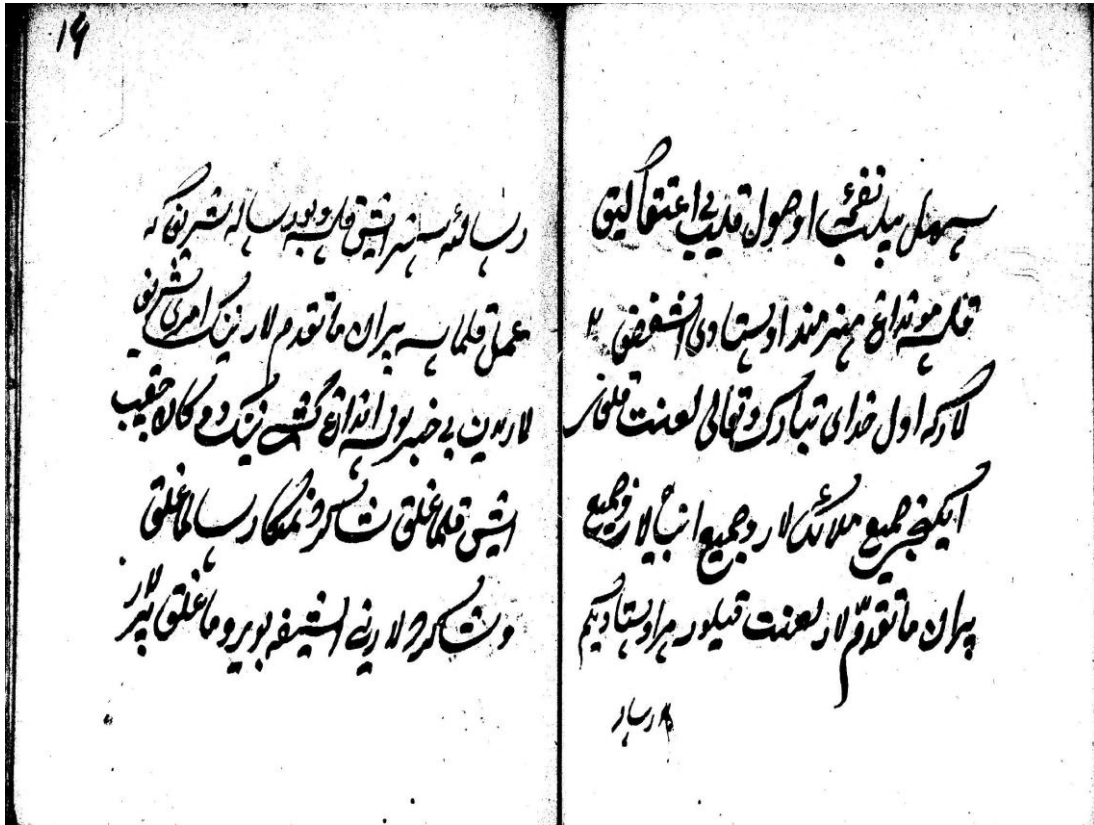 سهل بیلیب اوصول قلیب بی اعتقادلیق
قلسه مونداغ هنرمند اوستادی
لارکه اول خدای تبارک و تعالی لعنت قلغای
ایکنجی جمیع ملائک لار و جمیع انبیا لار و جمیع
پیران ماتقدّم لار لعنت قیلور هر اوستادیکم
رساله
۱۹
رساله سیز ایش قلسه و بو رساله شریف که
عمل قلماسه پیران ماتقدم لارنینک امر شریف
لاریدین بی خبر بولسه انداغ کشی نینک
ایش قلماغلیق شاکرد نمکار سالماغلیق
و شاکرد لارنی ایشیغه بویروماغلیق پیر لار